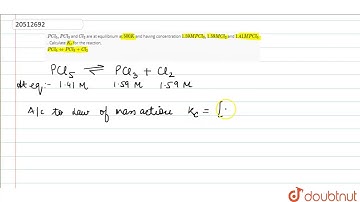 20512692
PCl5, PCl3 and Cl2 are at equilibrium at 500K and having concentration 1.59M PCl3, 1.59M Cl2 and 1.41M PCl5.
Calculate Kc for the reaction.
PCl5 ⇌ PCl3 + Cl2
PCl5 ⇌ PCl3 + Cl2
At eq:- 1.41 M 1.59 M 1.59 M
A/c to Law of mass action Kc = [
doubtnut